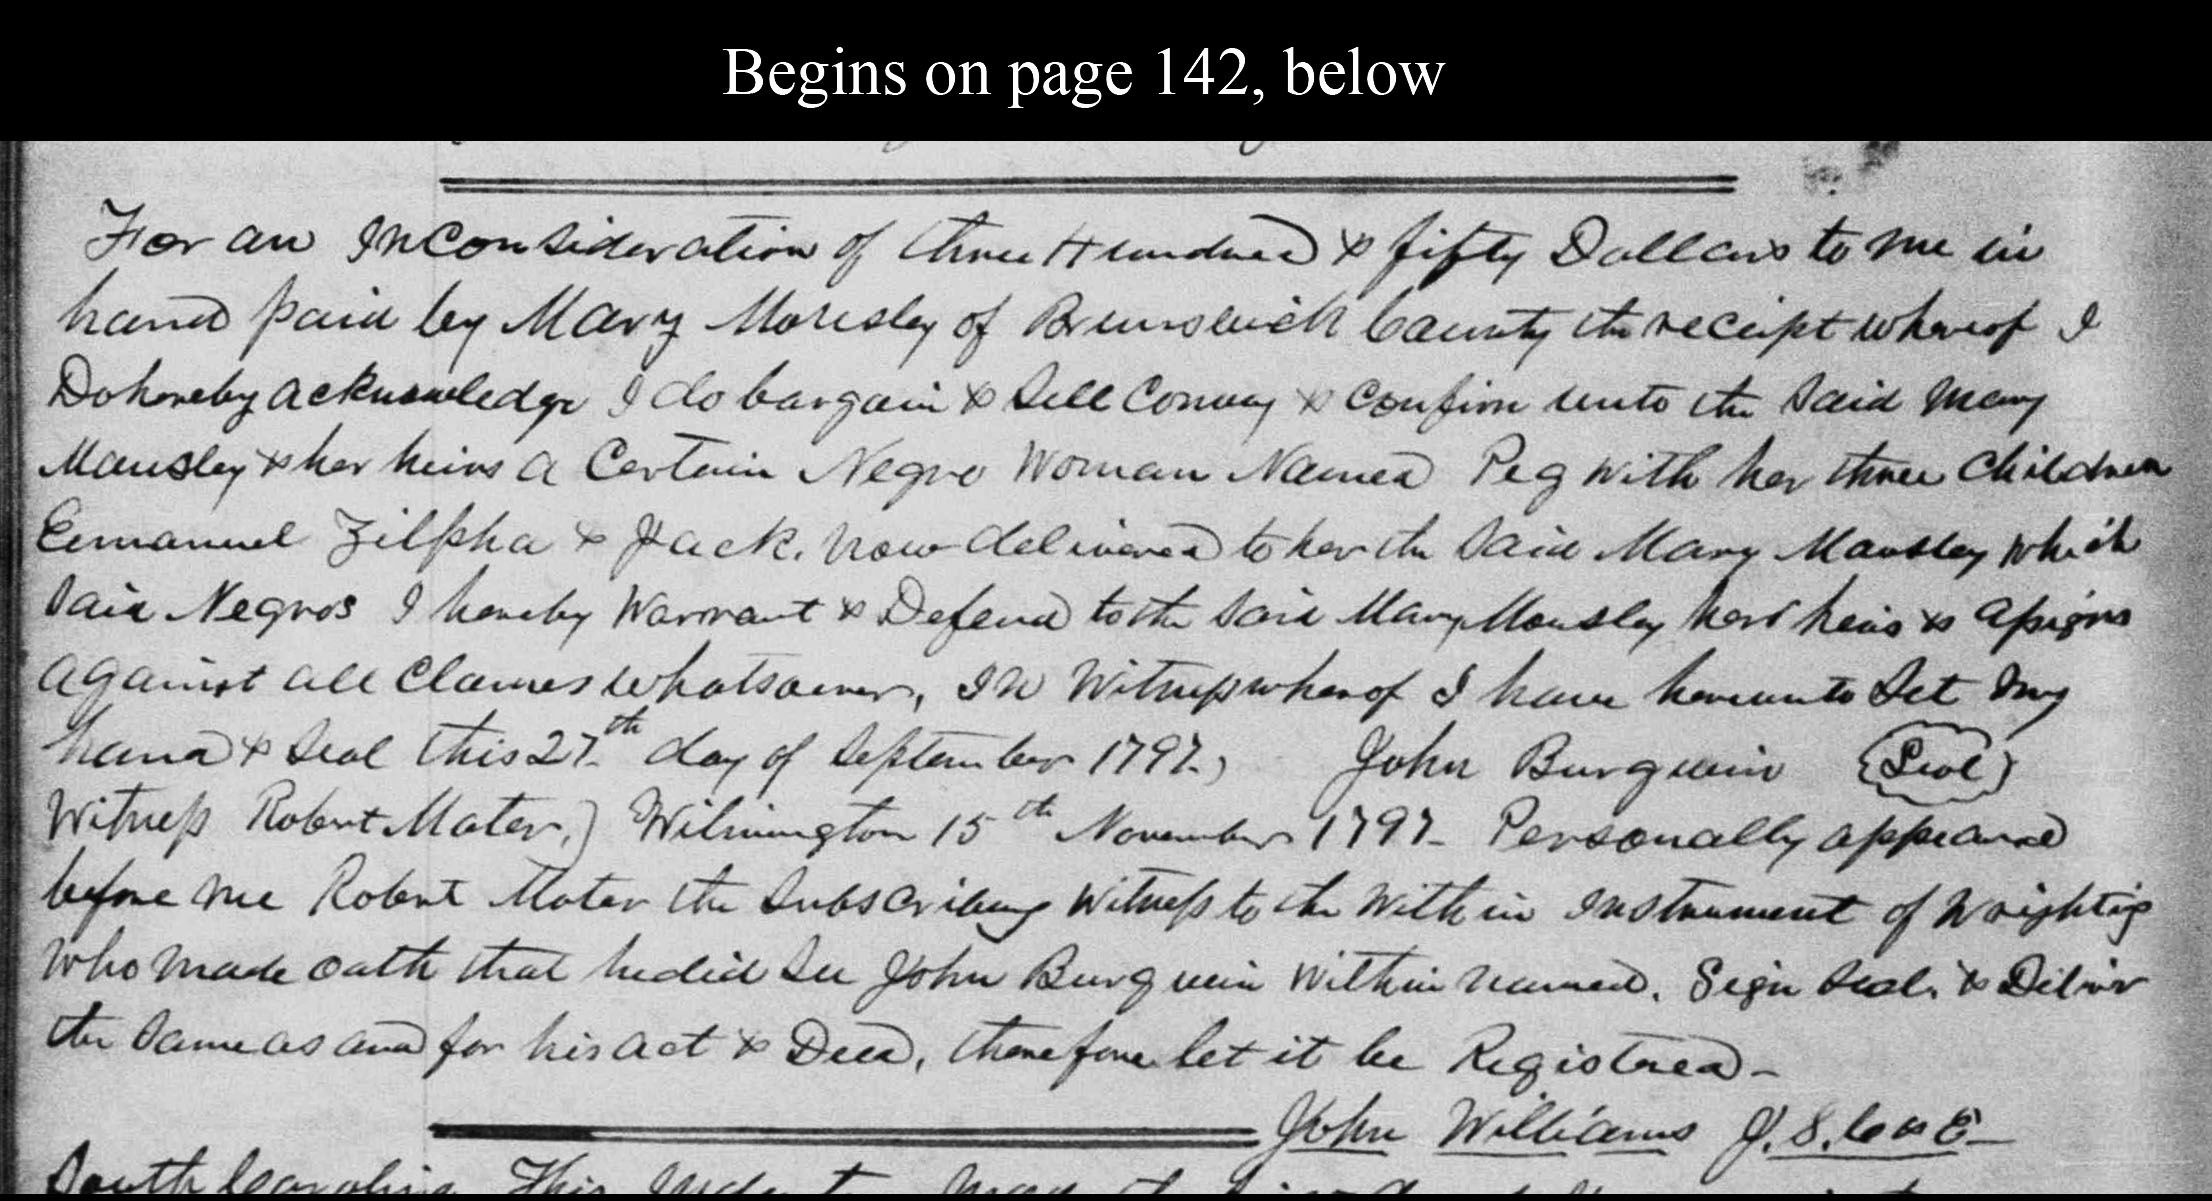 Begins on page 142, below
For an InConsideration of three Hundred & fifty Dollars to me in
hand paid by Mary Mousley of Brunswick County the receipt whereof I
Do hereby acknowledge I do bargain & Sell Convey & Confirm unto the Said Mary
Mousley & her heirs a Certain Negro Woman Named Peg with her three Children
Eemanuel Zilpha & Jack. now delivered to her the Said Mary Mousley which
Said Negros I hereby Warrant & Defend to the Said Mary Mousley her heirs & assigns
against all Claimes whatsoever, In Witness whereof I have hereunto Set my
hand & Seal this 27th day of September 1797. John Burgwin (Seal)
Witness Robert Mater.) Wilmington 15th November 1797- Personally appeared
before me Robert Mater the Subscribing Witness to the Within Instrument of Wrightig
who made oath that he did See John Burgwin Within named. Sign Seal. & Deliver
the Same as and for his act & Deed, therefore let it be Registred-
John Williams J.S.C & E-
South Carolina This